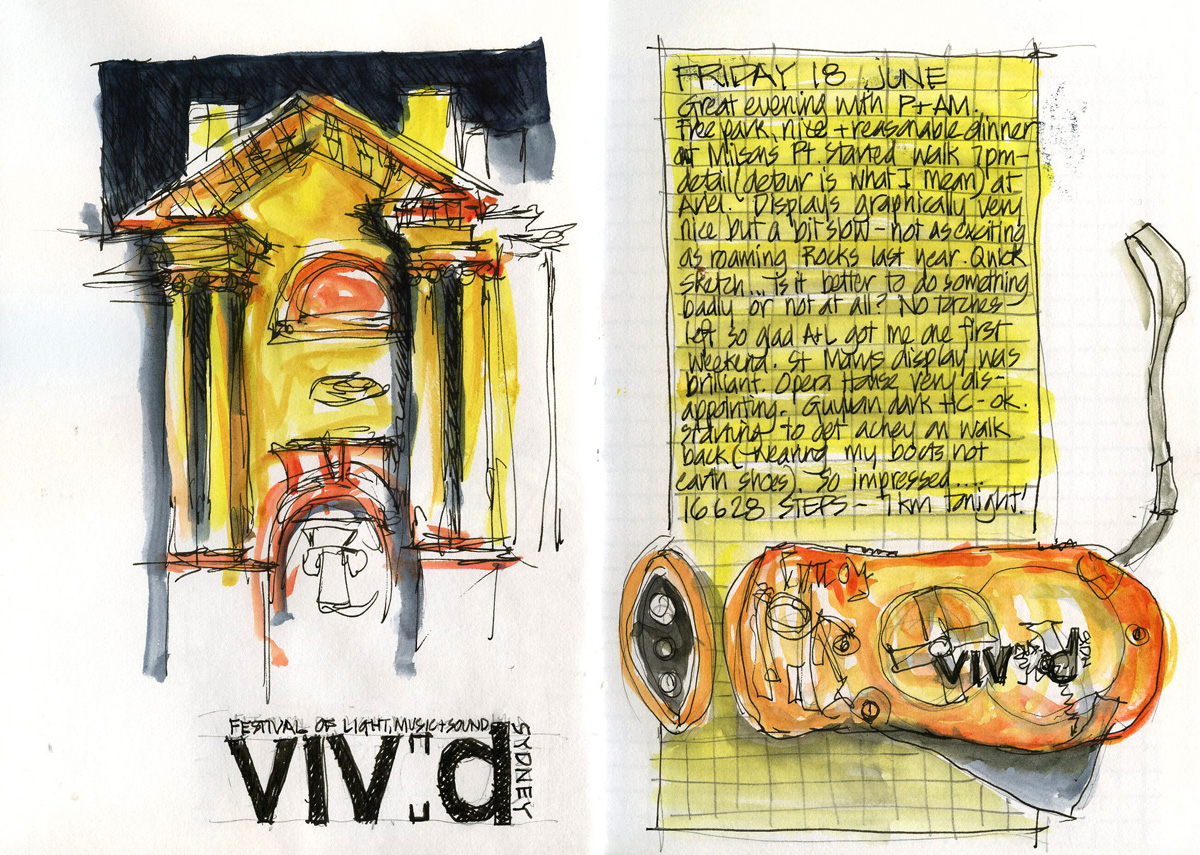 FESTIVAL OF LIGHT, MUSIC+SOUND
VIVID
SYDNEY
FRIDAY 18 JUNE
Great evening with P+AM.
free park, nice + reasonable dinner
at Milsons Pt. Started walk 7pm-
detail (detour is what I mean) at
Displays graphically very
nice but a bit slow - not as exciting
as roaming Rocks last year. Quick
sketch... Is it better to do something
badly or not at all? No torches
left so glad A+L got me one first
weekend. St Marys display was
brilliant. Opera House very dis-
appointing. dark HC - ok.
starting to get achey on walk
back (wearing my boots not
earth shoes). So impressed...
16628 STEPS - km tonight!
VIVID